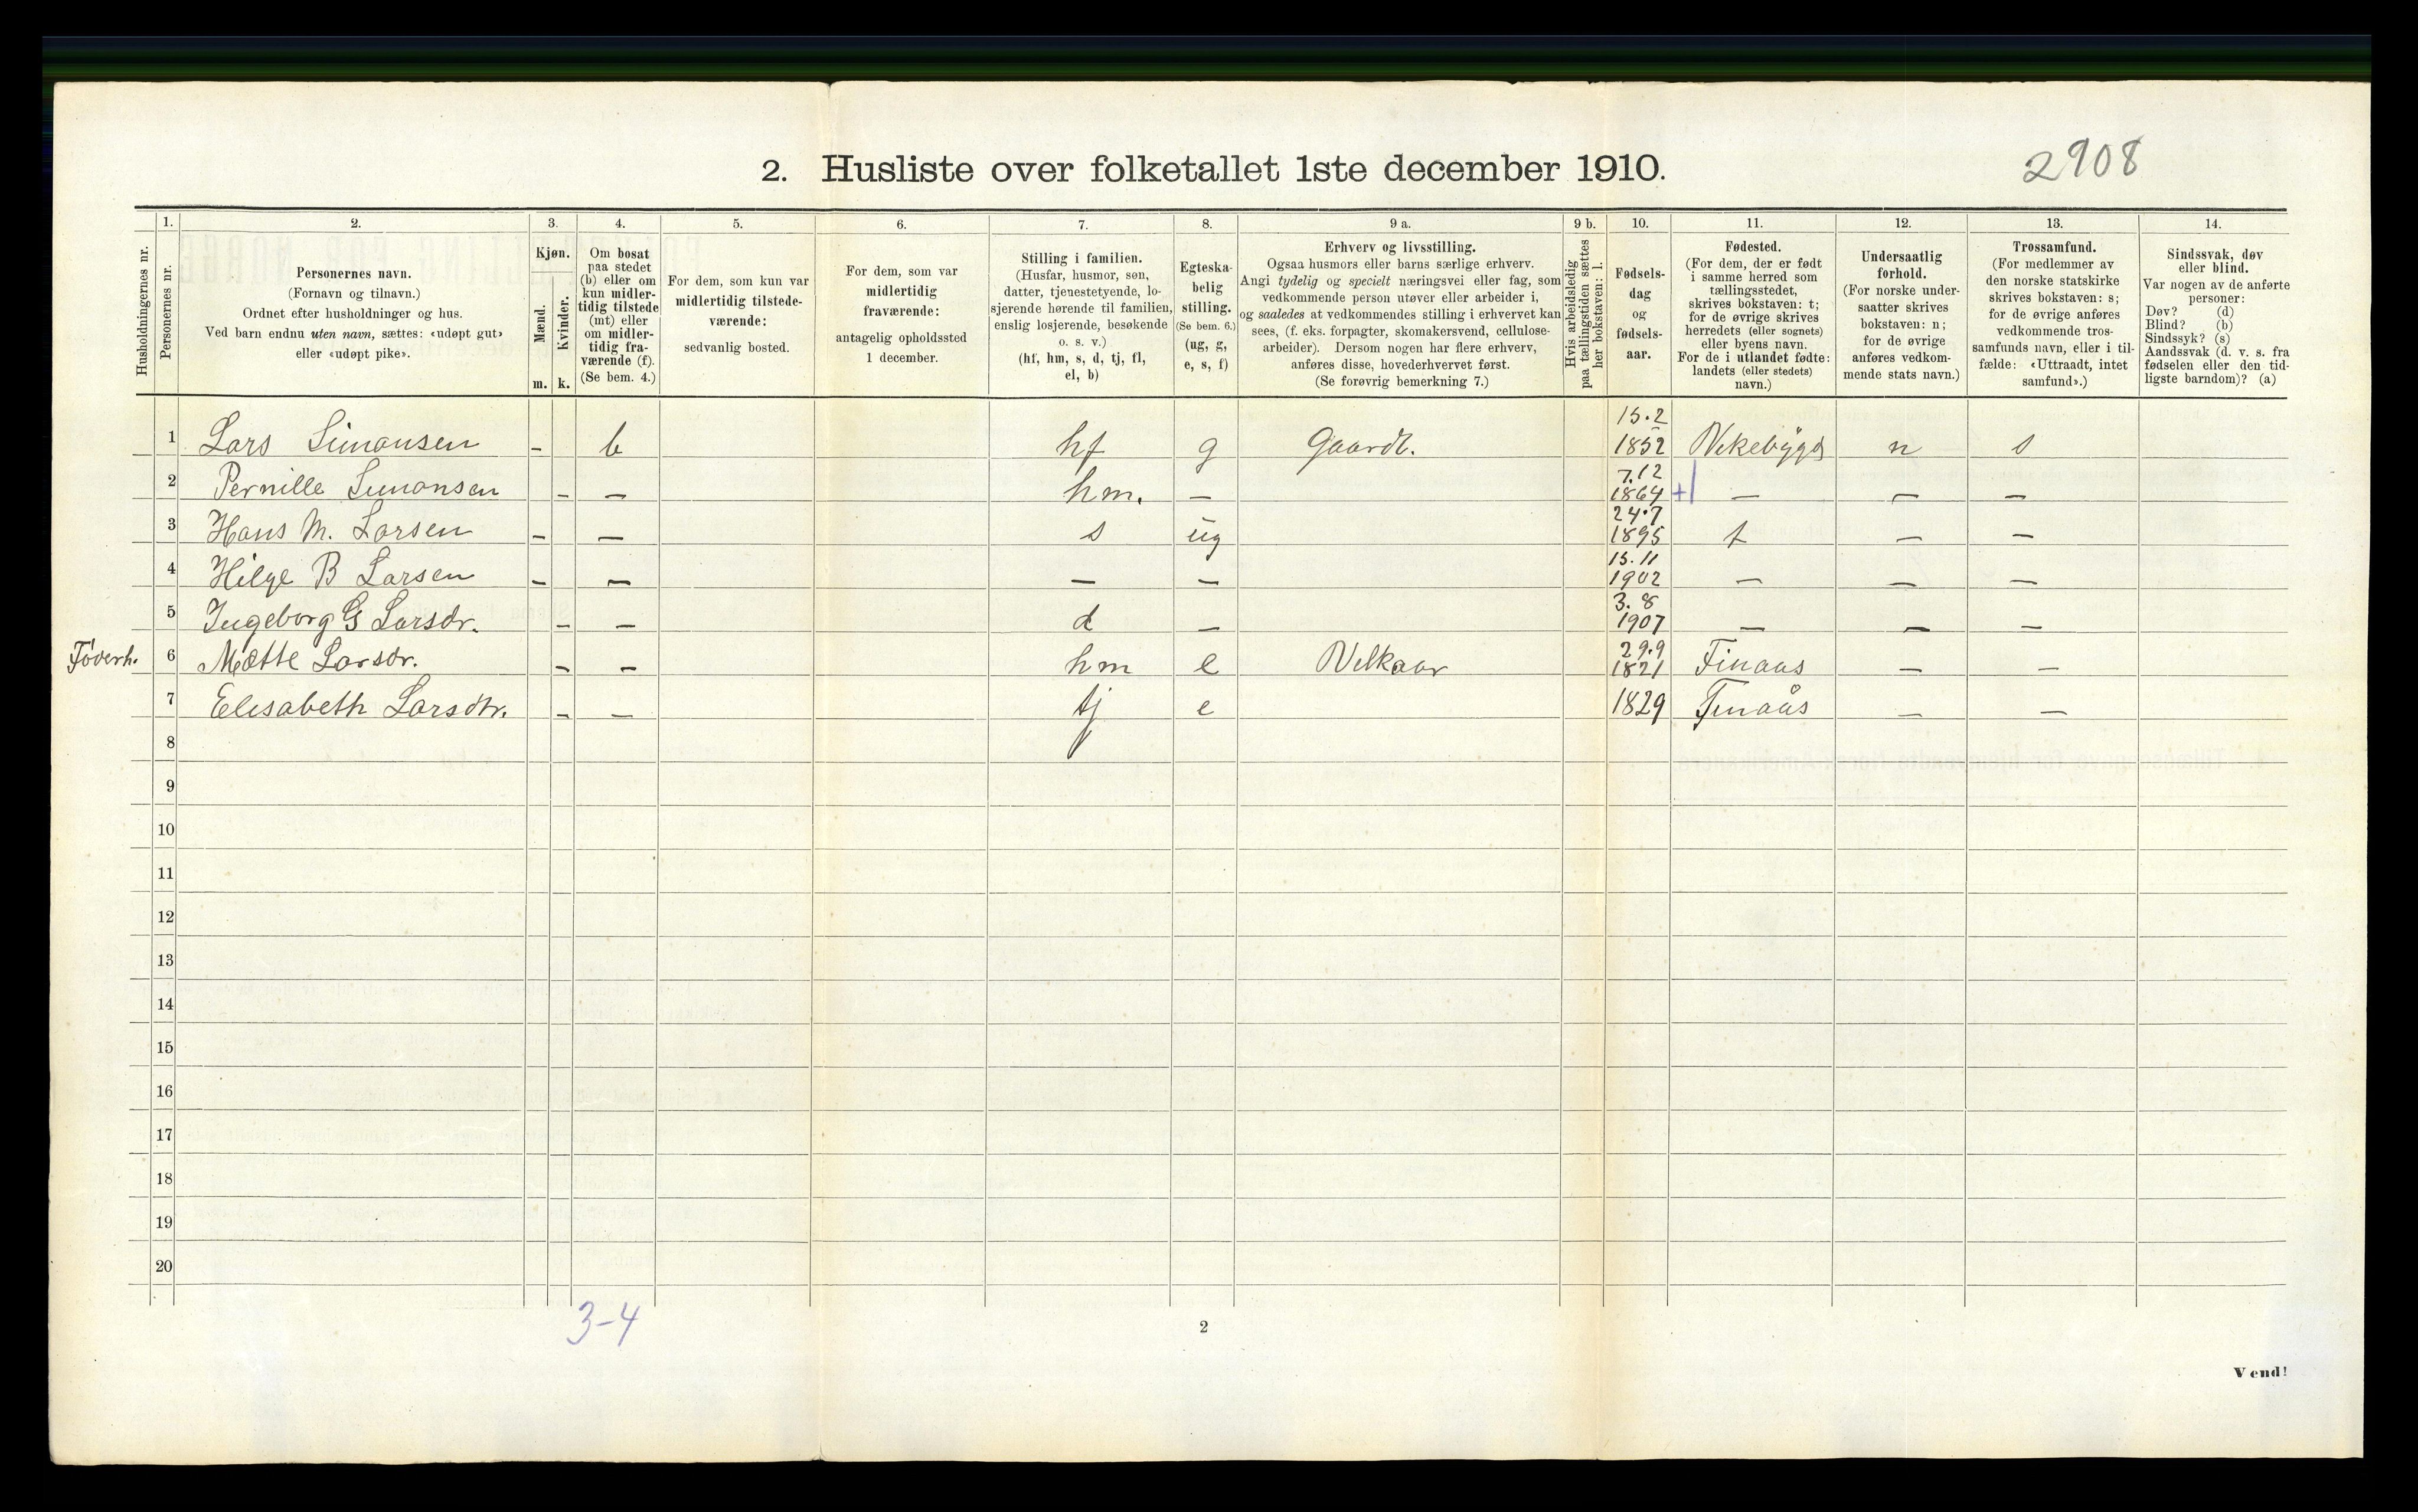 2. Husliste over folketallet 1ste december 1910.
2908
Husholdningernes nr.
1.
Personernes nr.
2.
Personernes navn.
(Fornavn og tilnavn.)
Ordnet efter husholdninger og hus.
Ved barn endnu uten navn, sættes: «udøpt gut»
eller «udøpt pike».
3.
Kjøn.
Mænd.
Kvinder.
m. k.
4.
Om bosat
paa stedet
(b) eller om
kun midler-
tidig tilstede
(mt) eller
om midler-
tidig fra-
værende (f).
(Se bem. 4.)
5.
For dem, som kun var
midlertidig tilstede-
værende:
sedvanlig bosted.
6.
For dem, som var
midlertidig
fraværende:
antagelig opholdssted
1 december.
7.
Stilling i familien.
(Husfar, husmor, søn,
datter, tjenestetyende, lo-
sjerende hørende til familien,
enslig losjerende, besøkende
o. s. v.)
(hf, hm, s, d, tj, fl,
el, b)
8.
Egteska-
belig
stilling.
(Se bem. 6.)
(ug, g,
e, s, f)
9 a.
Erhverv og livsstilling.
Ogsaa husmors eller barns særlige erhverv.
Angi tydelig og specielt næringsvei eller fag, som
vedkommende person utøver eller arbeider i,
og saaledes at vedkommendes stilling i erhvervet kan
sees, (f. eks. forpagter, skomakersvend, cellulose-
arbeider). Dersom nogen har flere erhverv,
anføres disse, hovederhvervet først.
(Se forøvrig bemerkning 7.)
9 b.
Hvis arbeidsledig
paa tællingstiden sættes
her bokstaven: l.
10.
Fødsels-
dag
og
fødsels-
aar.
11.
Fødested.
(For dem, der er født
i samme herred som
tællingsstedet,
skrives bokstaven: t;
for de øvrige skrives
herredets (eller sognets)
eller byens navn.
For de i utlandet fødte:
landets (eller stedets)
navn.)
12.
Undersaatlig
forhold.
(For norske under-
saatter skrives
bokstaven: n;
for de øvrige
anføres vedkom-
mende stats navn.)
13.
Trossamfund.
(For medlemmer av
den norske statskirke
skrives bokstaven: s;
for de øvrige anføres
vedkommende tros-
samfunds navn, eller i til-
fælde: «Uttraadt, intet
samfund».)
14.
Sindssvak, døv
eller blind.
Var nogen av de anførte
personer:
Døv? (d)
Blind? (b)
Sindssyk? (s)
Aandssvak (d. v. s. fra
fødselen eller den tid-
ligste barndom)? (a)
1 Lars Simonsen - b hf g Gaardb. 15.2 1852 Vikebygd n s
2 Pernille Simonsen - - hm. - 7.12 1864 +| - - -
3 Hans M. Larsen - - s ug 24.7 1895 t - -
4 Hilge B Larsen - - - - 15.11 1902 - - -
5 Ingeborg G Larsdr. - - d - 3.8 1907 - - -
Føderh. 6 Mette Larsdr. - - hm e Vilkaar 29.9 1821 Finaas - -
7 Elisabeth Larsdtr. - - tj e 1829 Finaås - -
8
9
10
11
12
13
14
15
16
17
18
19
20
3-4
2
Vend!